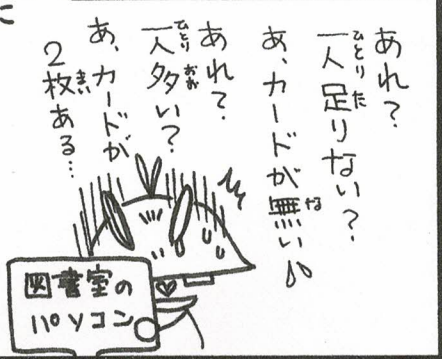 あれ?
一人足りない?
あ、カードが無い
あれ?
一人多い?
あ、カードが
2枚ある…
図書室の
パソコン